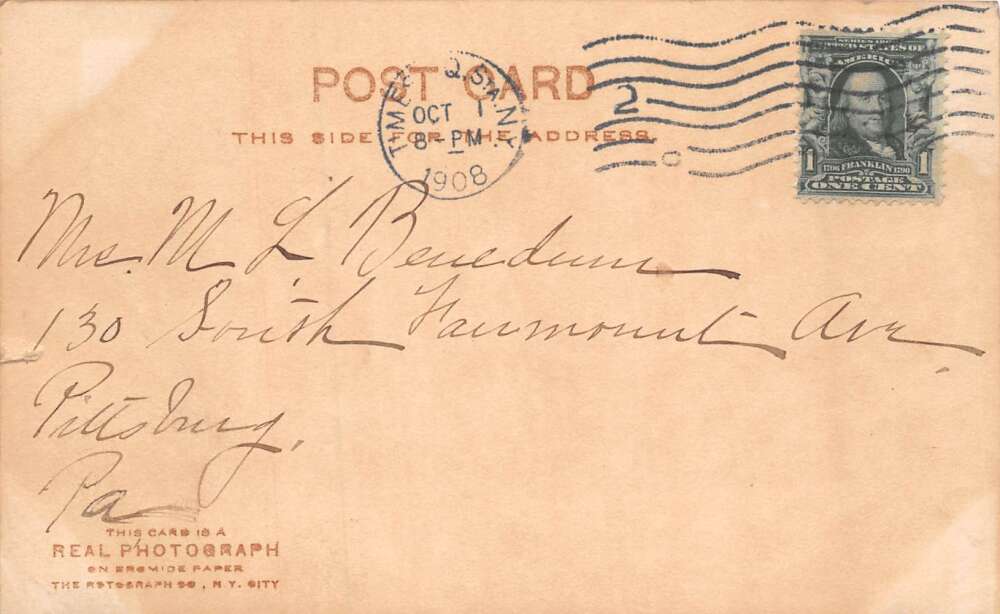 POST CARD
THIS SIDE FOR THE ADDRESS.
TIMES SQ. STA. N.Y.
OCT 1
8 - PM
1908
2
C
SERIES 1902
UNITED STATES OF
AMERICA
1 FRANKLIN 1
1706 1790
POSTAGE
ONE CENT
Mrs. M. L. Benedum
130 South Fairmount Ave.
Pittsburg,
Pa
THIS CARD IS A
REAL PHOTOGRAPH
ON BROMIDE PAPER
THE ROTOGRAPH CO., N.Y. CITY